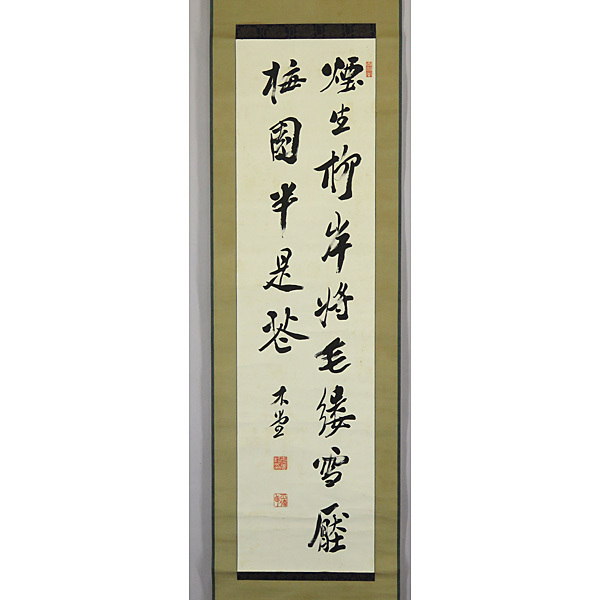 煙生柳岸將毛縷雪壓
梅園半是花
木堂